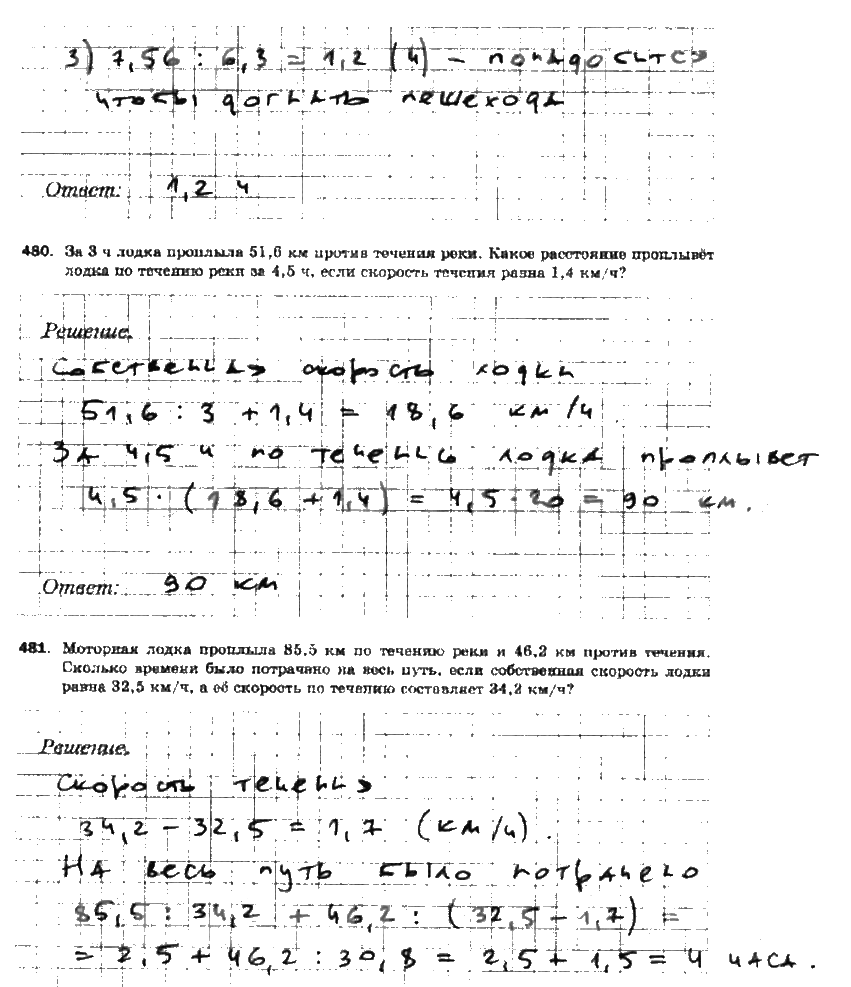 3) 7,56 : 6,3 = 1,2 (ч) – понадобится
чтобы догнать пешехода
Ответ: 1,2 ч
480. За 3 ч лодка проплыла 51,6 км против течения реки. Какое расстояние проплывёт
лодка по течению реки за 4,5 ч, если скорость течения равна 1,4 км/ч?
Решение.
Собственная скорость лодки
51,6 : 3 + 1,4 = 18,6 км/ч
За 4,5 ч по течению лодка проплывет
4,5 · (18,6 + 1,4) = 4,5 · 20 = 90 км.
Ответ: 90 км
481. Моторная лодка проплыла 85,5 км по течению реки и 46,2 км против течения.
Сколько времени было потрачено на весь путь, если собственная скорость лодки
равна 32,5 км/ч, а её скорость по течению составляет 34,2 км/ч?
Решение.
Скорость течения
34,2 – 32,5 = 1,7 (км/ч).
На весь путь было потрачено
85,5 : 34,2 + 46,2 : (32,5 – 1,7) =
= 2,5 + 46,2 : 30,8 = 2,5 + 1,5 = 4 часа.